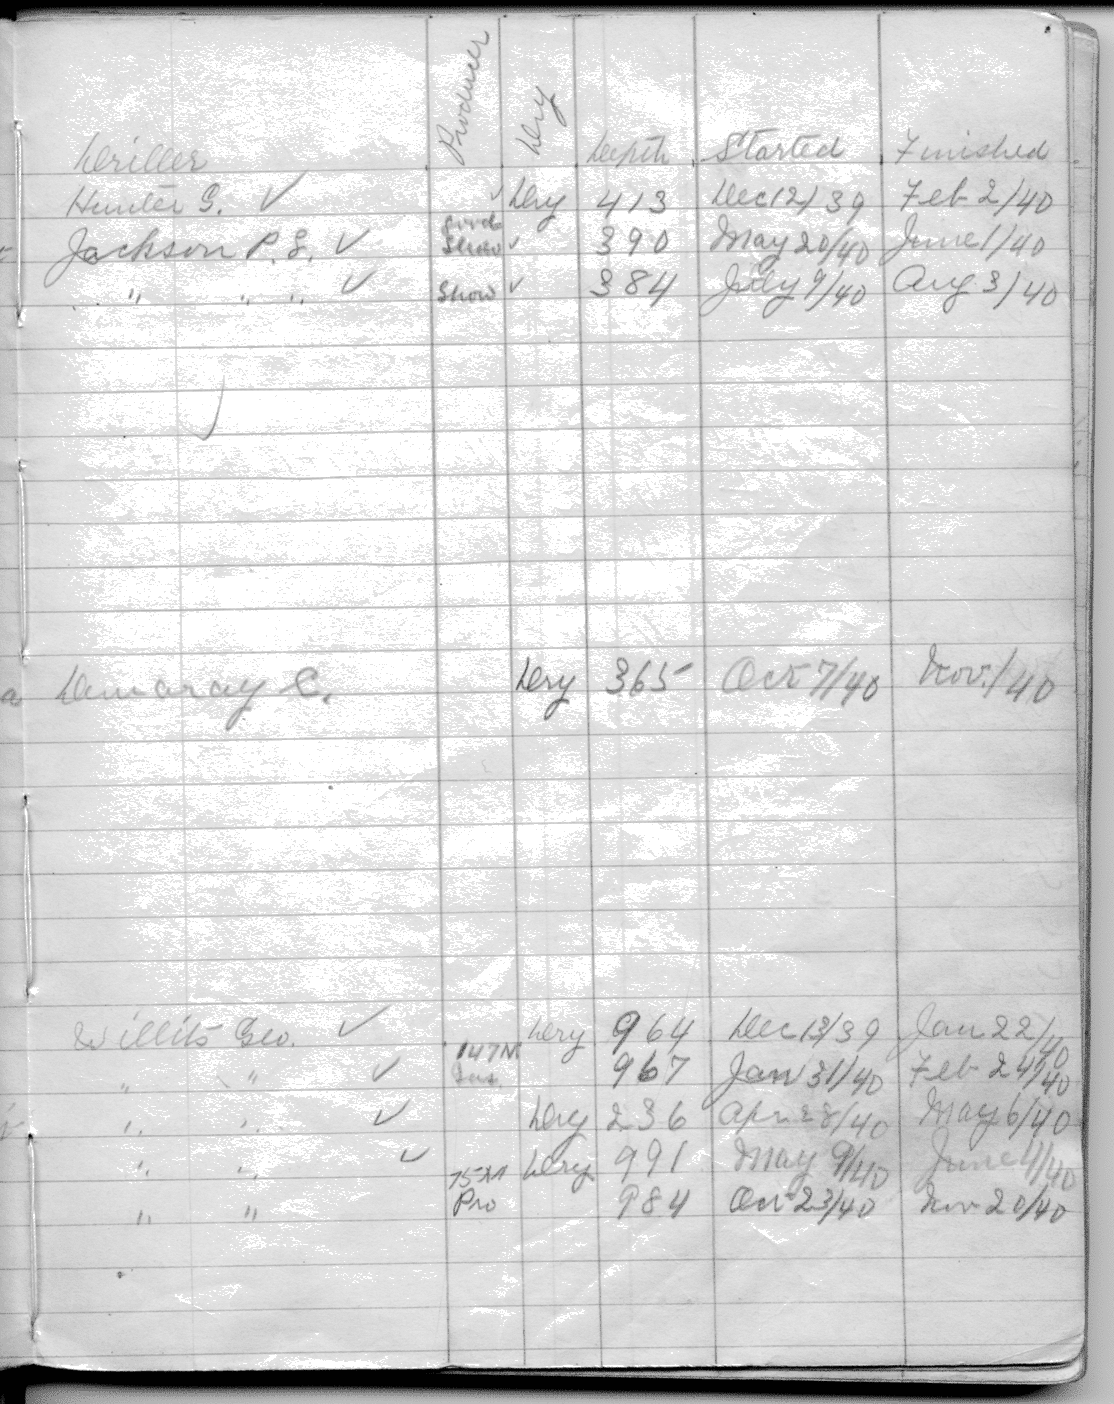 Driller Producer Dry Depth Started Finished
Hunter G. ✓ ✓ Dry 413 Dec 12/39 Feb 2/40
Jackson P.S. ✓ Good Show ✓ 390 May 20/40 June 1/40
" " " ✓ Show ✓ 384 July 9/40 Aug 3/40
Demaray C. Dry 365 Oct 7/40 Nov. 1/40
Willits Geo. ✓ Dry 964 Dec 13/39 Jan 22/40
" " ✓ 147 M Gas. 967 Jan 31/40 Feb 24/40
" " ✓ Dry 236 Apr 28/40 May 6/40
" " ✓ Dry 991 May 9/40 June 11/40
" " 75 M Pro 984 Oct 23/40 Nov 20/40